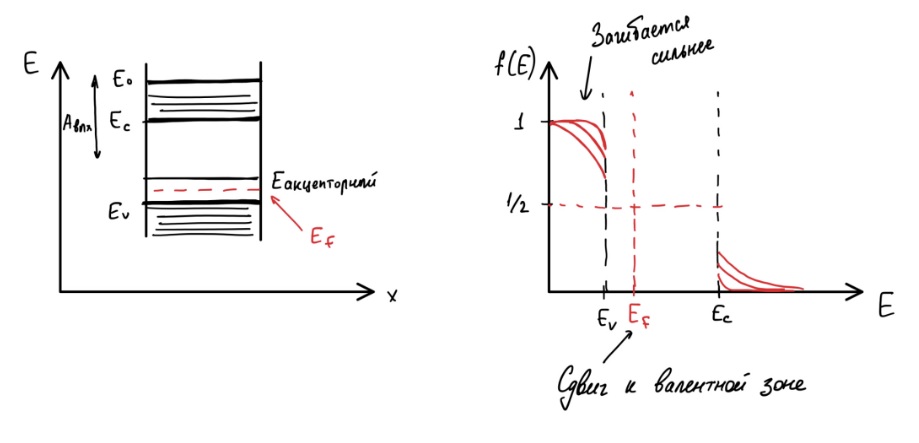 E
E₀
Aвпх
Ec
Eакцепторный
Ev
Ef
x
Загибается
сильнее
f(E)
1
1/2
Ev
Ef
Ec
E
Сдвиг к валентной зоне